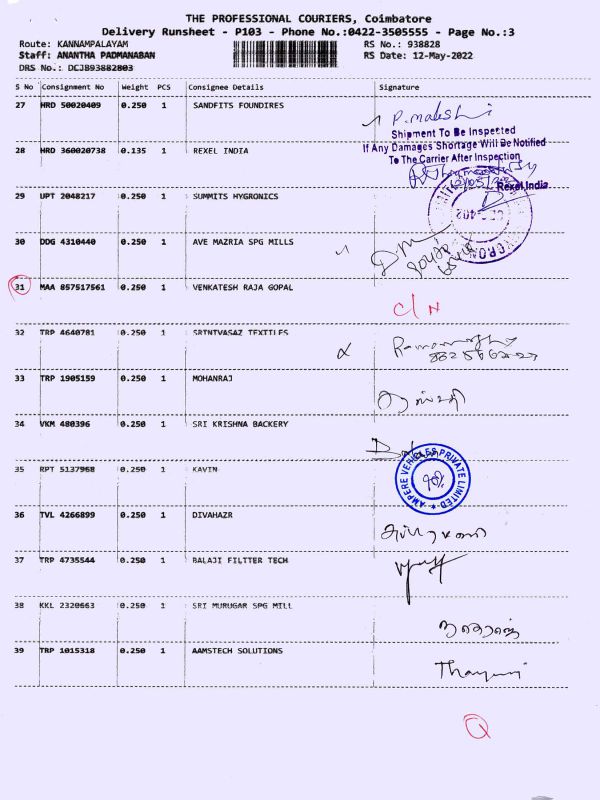 THE PROFESSIONAL COURIERS, Coimbatore
Delivery Runsheet - P103 - Phone No.:0422-3505555 - Page No.:3
Route: KANNAMPALAYAM RS No.: 938828
Staff: ANANTHA PADMANABAN RS Date: 12-May-2022
DRS No.: DCJB93882803
S No Consignment No Weight PCS Consignee Details Signature
27 HRD 50020409 0.250 1 SANDFITS FOUNDIRES
P. maleshi
Shipment To Be Inspected
If Any Damages Shortage Will Be Notified
To The Carrier After Inspection
28 HRD 360020738 0.135 1 REXEL INDIA
Rexel India
29 UPT 2048217 0.250 1 SUMMITS HYGRONICS
30 DDG 4310440 0.250 1 AVE MAZRIA SPG MILLS
31 MAA 857517561 0.250 1 VENKATESH RAJA GOPAL
C/N
32 TRP 4640781 0.250 1 SRINIVASAZ TEXTILES
33 TRP 1905159 0.250 1 MOHANRAJ
34 VKM 480396 0.250 1 SRI KRISHNA BACKERY
35 RPT 5137968 0.250 1 KAVIN
AMPERE VEHICLES PRIVATE LIMITED
36 TVL 4266899 0.250 1 DIVAHAZR
37 TRP 4735544 0.250 1 BALAJI FILTTER TECH
38 KKL 2320663 0.250 1 SRI MURUGAR SPG MILL
39 TRP 1015318 0.250 1 AAMSTECH SOLUTIONS